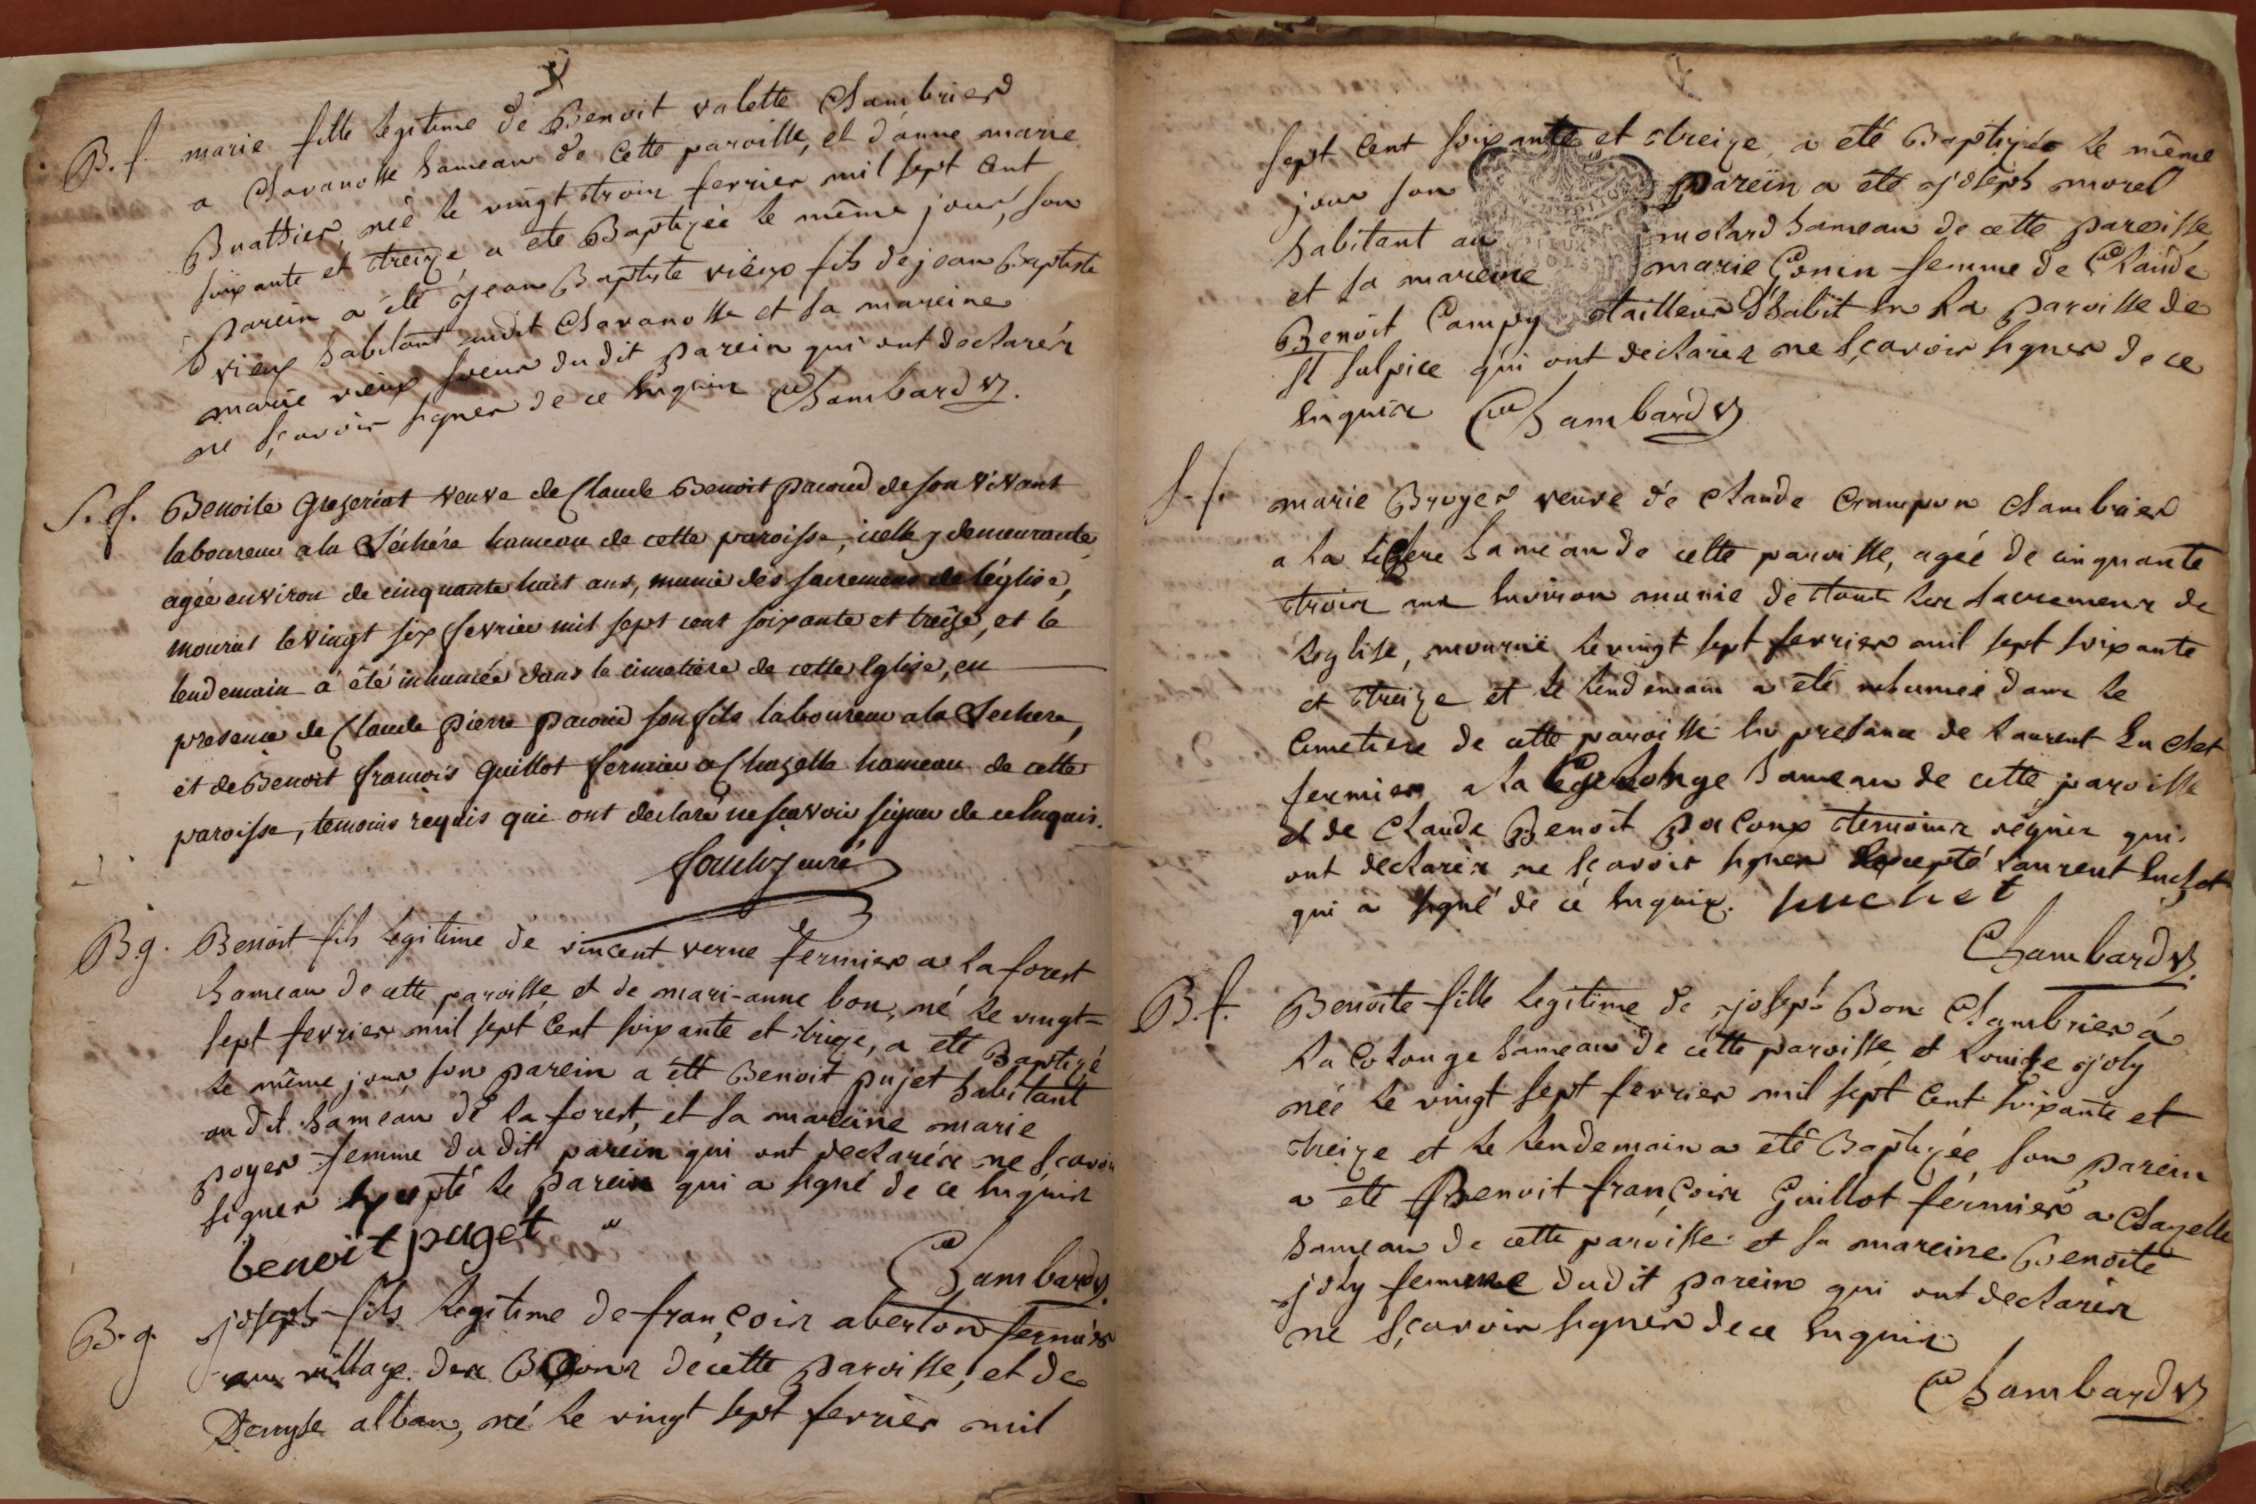 B. f. marie fille legitime de Benoit valette Chambrier
a Chavanosse hameau de cette paroisse, et d'anne marie
Buathier, née le vingt trois fevrier mil sept Cent
soixante et treize, a ete Baptizée le même jour, son
parein a été Jean Baptiste vieux fils de jean Baptiste
vieux habitant audit Chavanosse et sa mareine
marie vieux soeur du dit parein qui ont declarés
ne sçavoir signer de ce enquis Chambard V.
S. f. Benoite Gregeriat veuve de Claude Benoit pacoud de son vivant
laboureur a la Séchére hameau de cette paroisse, icelle y demeurante,
agée environ de cinquante huit ans, munie des sacremens de léglise,
mourut le vingt six fevrier mil sept cent soixante et treize, et le
lendemain a été inhumée dans le cimetiere de cette Eglise, en
presence de Claude pierre pacoud son fils laboureur a la Sechere,
et de Benoit francois Guillot fermier a Chazelle hameau de cette
paroisse, temoins requis qui ont declaré ne scavoir signer de ce Enquis.
curé
B. g. Benoit fils legitime de vincent verne fermier a la forest
hameau de cette paroisse et de mari-anne bon, né le vingt=
sept fevrier mil sept Cent soixante et treize, a eté Baptizé
le même jour son parein a été Benoit pujet habitant
au dit hameau de la forest, et sa mareine marie
poyer femme du dit parein qui ont declarés ne sçavoir
signer excepté le parein qui a signé de ce enquis
benoit puget
Chambard V.
B. g. joseph fils legitime de françois aberton fermier
au village des de cette paroisse, et de
Denyse alban, né le vingt sept fevrier mil
sept Cent soixante et treize, a eté Baptizée le même
jour son parein a eté joseph morel
habitant au molard hameau de cette paroisse
et sa mareine marie Gonin femme de Claude
Benoit Campy tailleur d'habit en la paroisse de
st sulpice qui ont declarés ne sçavoir signer de ce
enquis Chambard V
S. f. marie Broyer veuve de Claude Crampon Chambrier
a la hameau de cette paroisse, agée de cinquante
trois ans environ munie de tous les sacremens de
leglise, mourut le vingt sept fevrier mil sept soixante
et treize et le lendemain a eté inhumée dans le
Cimetiere de cette paroisse en presance de Laurent Luchet
fermier a la hameau de cette paroisse
et de Claude Benoit pacoux temoins réquis qui
ont declarés ne sçavoir signer excepté Laurent Luchet
qui a signé de ce enquis. luchet
Chambard V.
B. f. Benoite fille legitime de joseph Bon Chambrier a
la Colonge hameau de cette paroisse et Louise joly
née le vingt sept fevrier mil sept Cent soixante et
treize et le lendemain a eté Baptizée, son parein
a eté Benoit françois Guillot fermier a Chazelle
hameau de cette paroisse et sa mareine Benoite
joly femme dudit parein qui ont declarés
ne sçavoir signer de ce enquis
Chambard V.